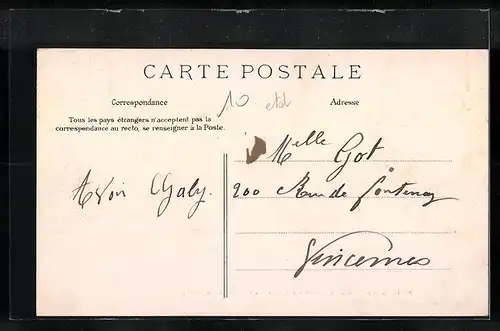 CARTE POSTALE
Correspondance
10
Adresse
Tous les pays étrangers n'acceptent pas la
correspondance au recto, se renseigner à la Poste.
Melle Got
200 Rue de Fontenay
Vincennes